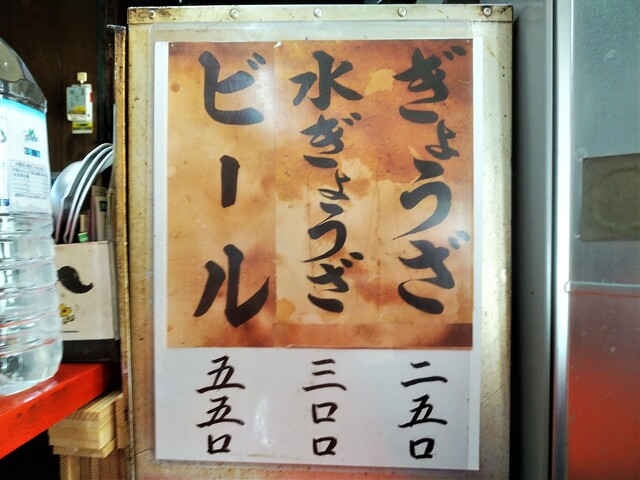 ぎょうざ
二五口
水ぎょうざ
三口口
ビール
五五口